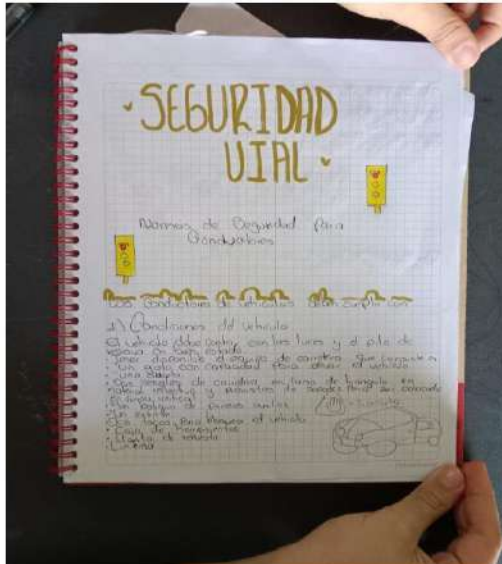 SEGURIDAD
VIAL
Normas de Seguridad Para
Conductores
Los conductores de vehiculos deben cumplir con
1) Condiciones del vehiculo
El vehiculo debe contar con las luces y el pito de
reversa en buen estado
Tener disponible el equipo de carretera que consiste en
Un gato con capacidad Para elevar el vehiculo
Una
Dos señales de carretera en forma de triangulo en
material reflectivo y
El
Un botiquin de primeros auxilios
Un extintor
Dos tacos Para bloquear el vehiculo
Caja de herramientas
Llanta de repuesto
Linterna